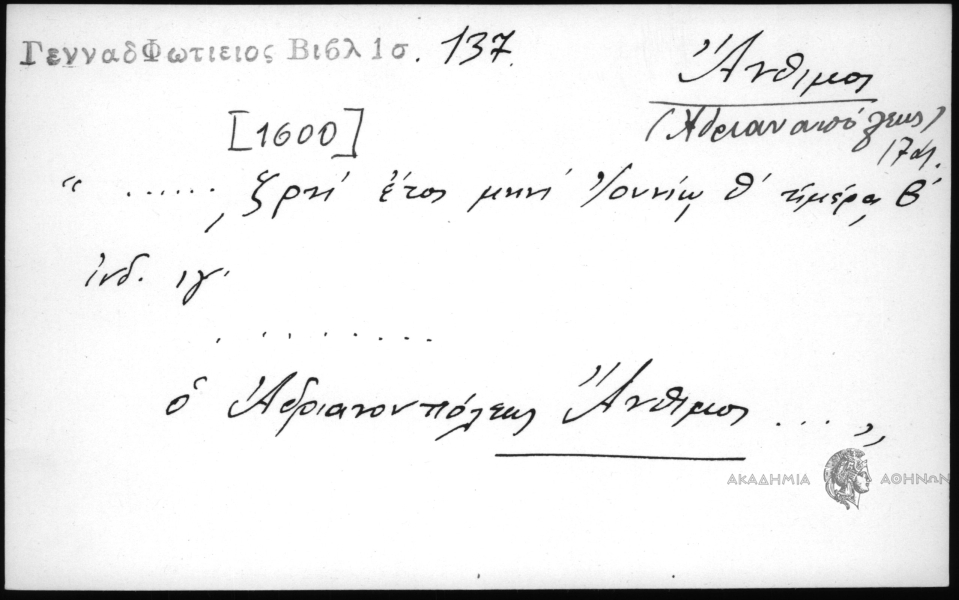 ΓενναδΦωτιειος Βιβλ 1σ. 137.
Ἄνθιμος
(Ἀδριανουπόλεως)
[1600]
17αι.
“ ...... ͵ζρηʹ ἔτος μηνὶ Ἰουνίῳ θʹ ἡμέρᾳ βʹ
ἰνδ. ιγʹ
. . . . . . . .
ὁ Ἀδριανουπόλεως Ἄνθιμος ... „
ΑΚΑΔΗΜΙΑ ΑΘΗΝΩΝ